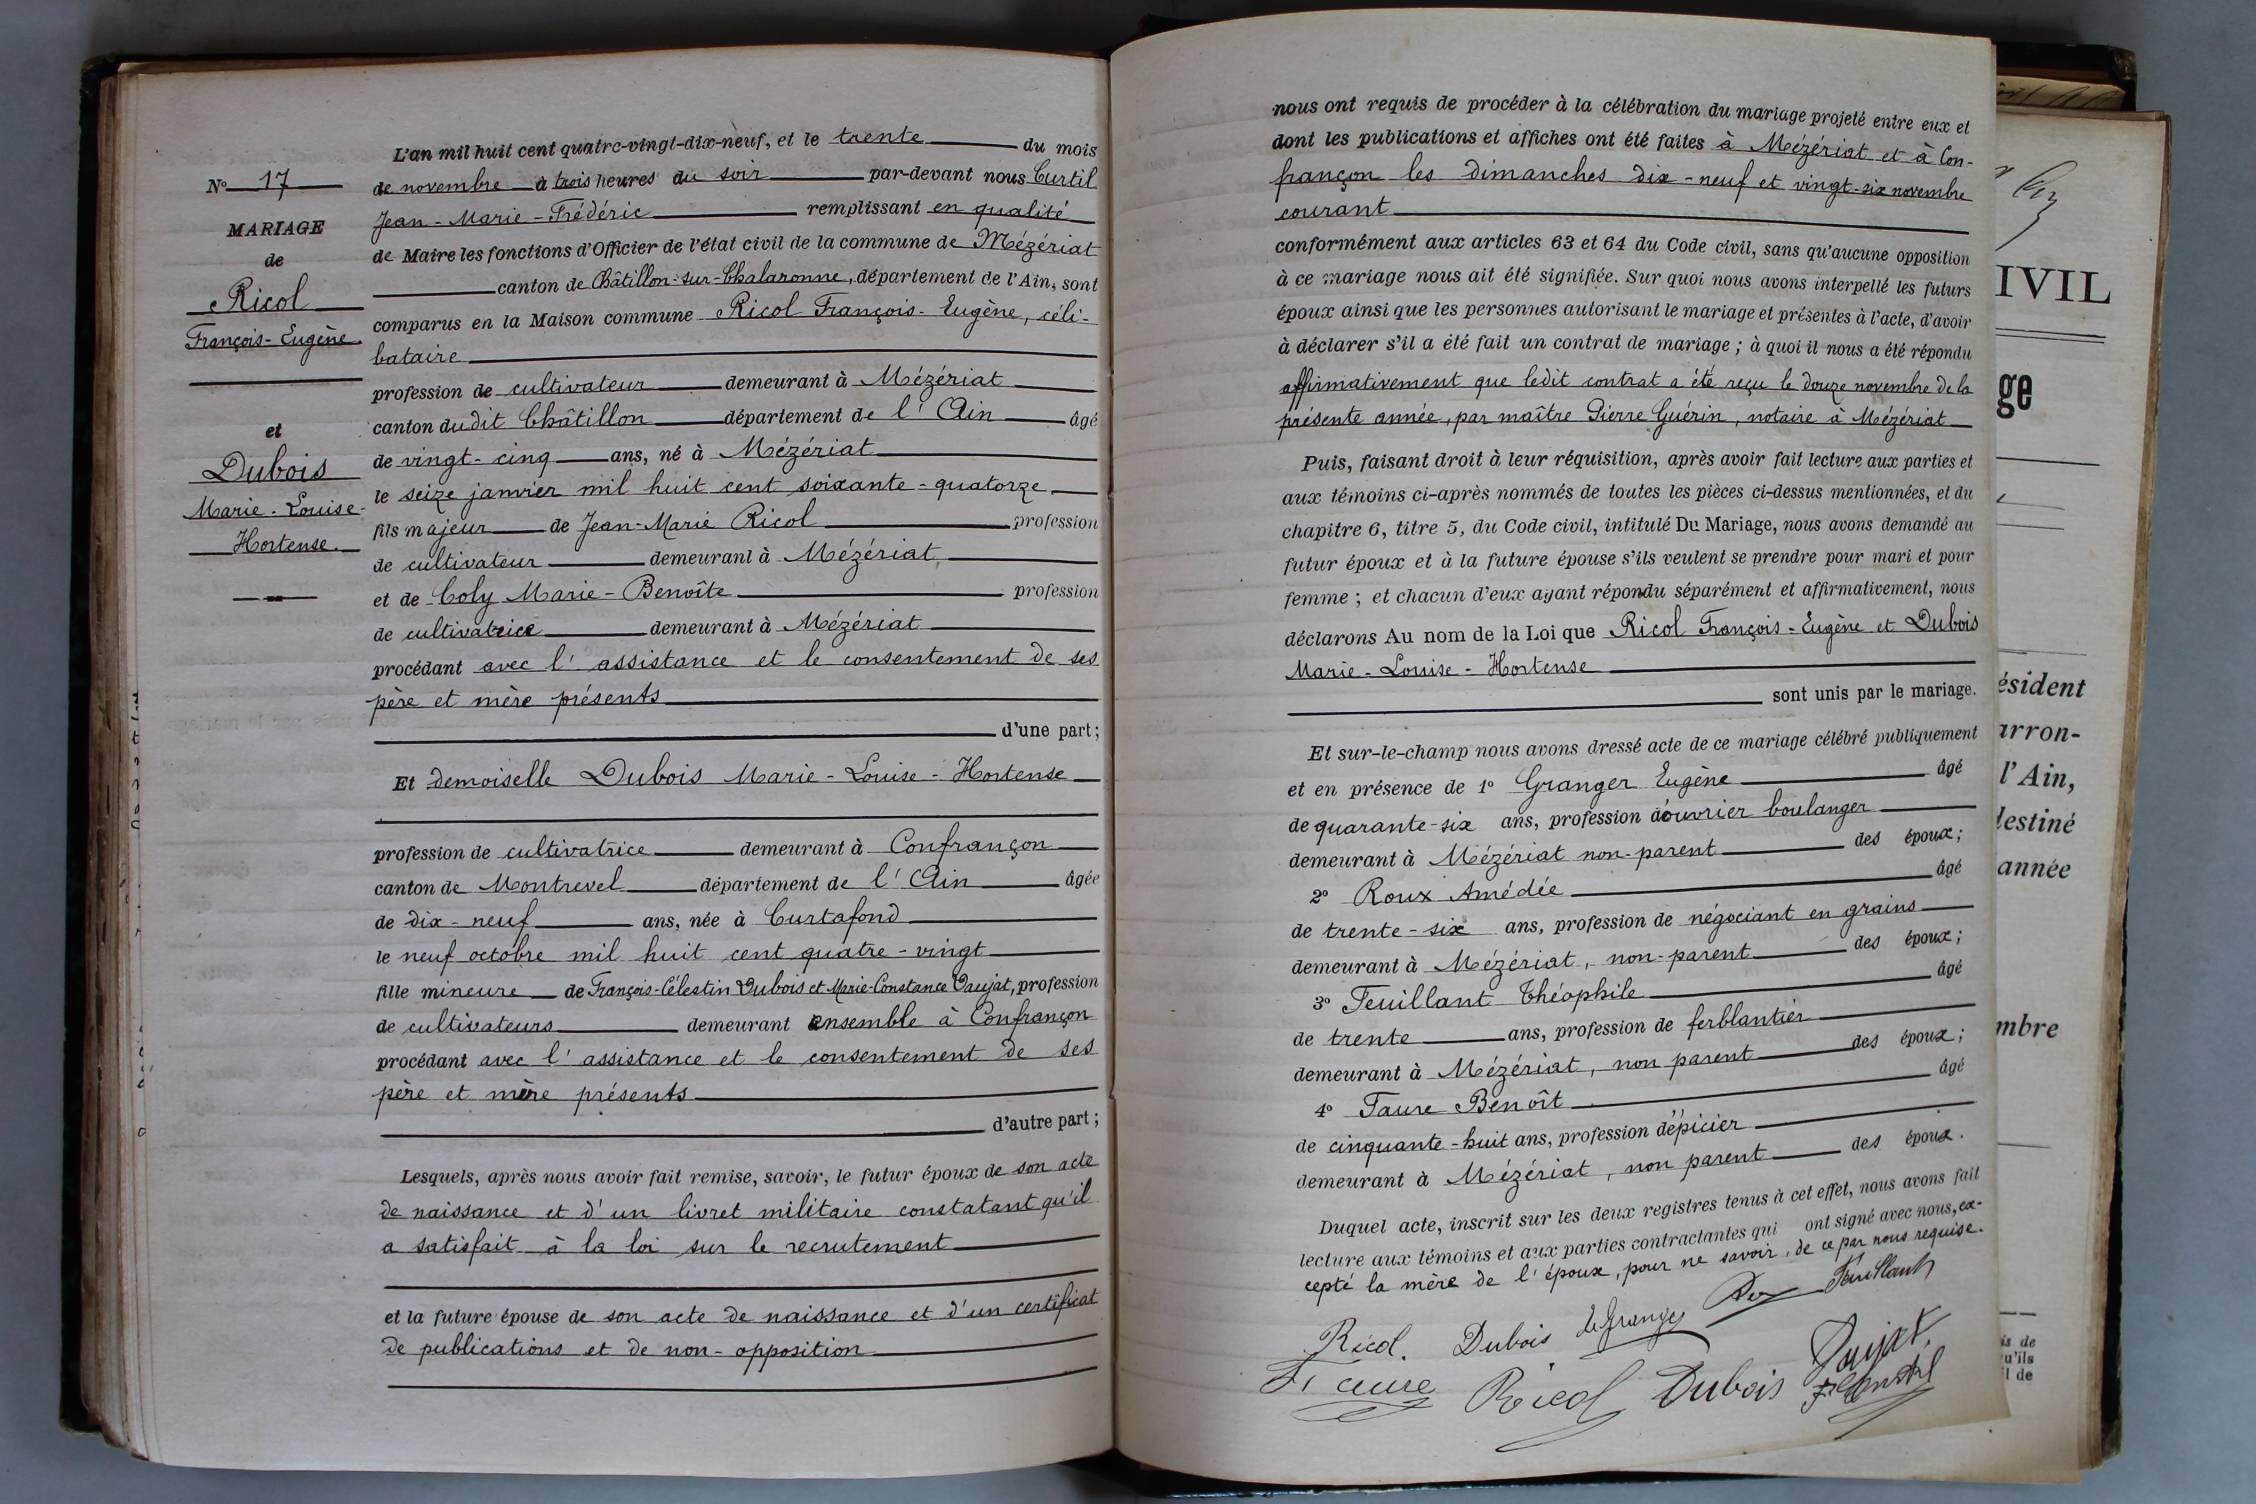 N° 17
MARIAGE
de
Ricol
François-Eugène.
et
Dubois
Marie-Louise-
Hortense.
L'an mil huit cent quatre-vingt-dix-neuf, et le trente du mois
de novembre à trois heures du soir par-devant nous Curtil
Jean-Marie-Frédéric remplissant en qualité
de Maire les fonctions d'Officier de l'état civil de la commune de Mézériat
canton de Châtillon-sur-Chalaronne, département de l'Ain, sont
comparus en la Maison commune Ricol François-Eugène, céli-
bataire
profession de cultivateur demeurant à Mézériat
canton dudit Châtillon département de l'Ain âgé
de vingt-cinq ans, né à Mézériat
le seize janvier mil huit cent soixante-quatorze
fils majeur de Jean-Marie Ricol profession
de cultivateur demeurant à Mézériat,
et de Coly Marie-Benoîte profession
de cultivatrice demeurant à Mézériat
procédant avec l'assistance et le consentement de ses
père et mère présents
d'une part;
Et demoiselle Dubois Marie-Louise-Hortense
profession de cultivatrice demeurant à Confrançon
canton de Montrevel département de l'Ain âgée
de dix-neuf ans, née à Curtafond
le neuf octobre mil huit cent quatre-vingt
fille mineure de François-Célestin Dubois et Marie-Constance Vaujat, profession
de cultivateurs demeurant ensemble à Confrançon
procédant avec l'assistance et le consentement de ses
père et mère présents
d'autre part;
Lesquels, après nous avoir fait remise, savoir, le futur époux de son acte
de naissance et d'un livret militaire constatant qu'il
a satisfait à la loi sur le recrutement
et la future épouse de son acte de naissance et d'un certificat
de publications et de non-opposition
nous ont requis de procéder à la célébration du mariage projeté entre eux et
dont les publications et affiches ont été faites à Mézériat et à Con-
françon les dimanches dix-neuf et vingt-six novembre
courant
conformément aux articles 63 et 64 du Code civil, sans qu'aucune opposition
à ce mariage nous ait été signifiée. Sur quoi nous avons interpellé les futurs
époux ainsi que les personnes autorisant le mariage et présentes à l'acte, d'avoir
à déclarer s'il a été fait un contrat de mariage; à quoi il nous a été répondu
affirmativement que ledit contrat a été reçu le douze novembre de la
présente année, par maître Pierre Guérin, notaire à Mézériat
Puis, faisant droit à leur réquisition, après avoir fait lecture aux parties et
aux témoins ci-après nommés de toutes les pièces ci-dessus mentionnées, et du
chapitre 6, titre 5, du Code civil, intitulé Du Mariage, nous avons demandé au
futur époux et à la future épouse s'ils veulent se prendre pour mari et pour
femme; et chacun d'eux ayant répondu séparément et affirmativement, nous
déclarons Au nom de la Loi que Ricol François-Eugène et Dubois
Marie-Louise-Hortense
sont unis par le mariage.
Et sur-le-champ nous avons dressé acte de ce mariage célébré publiquement
et en présence de 1° Granger Eugène âgé
de quarante-six ans, profession d'ouvrier boulanger
demeurant à Mézériat non-parent des époux;
2° Roux Amédée âgé
de trente-six ans, profession de négociant en grains
demeurant à Mézériat, non-parent des époux;
3° Feuillant Théophile âgé
de trente ans, profession de ferblantier
demeurant à Mézériat, non parent des époux;
4° Faure Benoît âgé
de cinquante-huit ans, profession d'épicier
demeurant à Mézériat, non parent des époux.
Duquel acte, inscrit sur les deux registres tenus à cet effet, nous avons fait
lecture aux témoins et aux parties contractantes qui ont signé avec nous, ex-
cepté la mère de l'époux, pour ne savoir, de ce par nous requise.
Ricol. Dubois Granger Roux Feuillant
Faure Ricol Dubois Vaujat.
F. Curtil
IVIL
ge
ésident
arron-
l'Ain,
destiné
année
mbre
is de
u'ils
l de